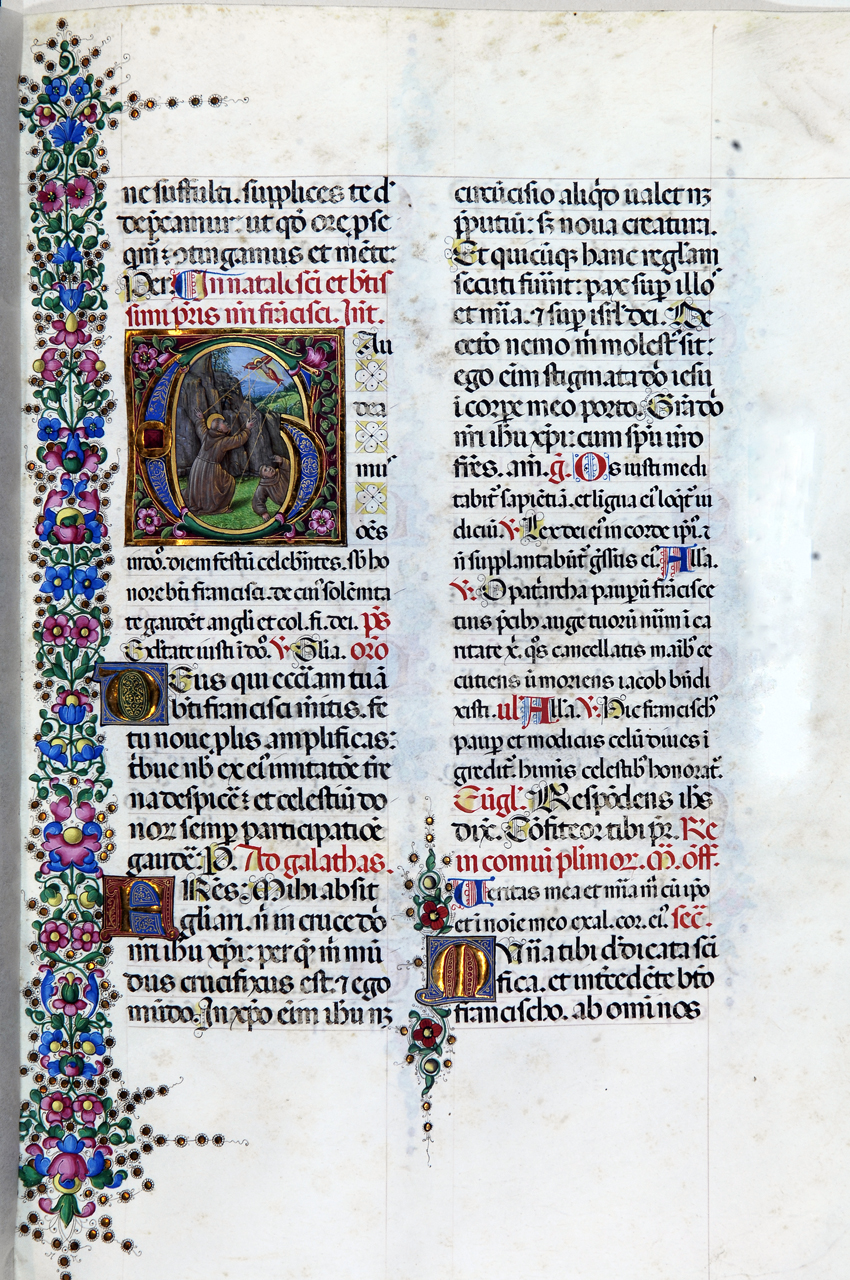 ne suffulti. supplices te d'
dep̄camur: ut qd̄ ore p̄se
qm̄ ɔtingamus et mēte.
Per In natali scī et btīs
simi pr̄is nr̄i frācisci. Int.
Gau
dea
mus
oēs
in dn̄o. diem festū celebr̄ntes. sb̄ ho
nore btī francisci. de cui' solēnita
te gaudēt angli et col. fi. dei. p̄s
Exltate iusti ī dn̄o. V Glia. oro
Deus qui eccl̄iam tuā
btī francisci mitis. fe
tu noue plis amplificas:
tbue nb̄ ex ei' imitatōe tr̄e
na despicē: et celestiū do
noꝝ semp̄ participatiōe
gaudē: P. Ad galathas.
FRēs. Mihi absit
gl̄iari. n̄ in cruce dn̄i
nr̄i ihū xp̄i: per quē m̄ mū
dus crucifixus est. ⁊ ego
mūdo. In xp̄o eīm ihū nꝫ
circūcisio aliqd̄ ualet nꝫ
p̄putiū: sꝫ noua creatura.
Et quicūqꝫ hanc regl̄am
secuti fūint: pax sup̄ illos
et mīa. ⁊ sup̄ isrl̄ dei. De
cetō nemo m̄ molest' sit:
ego eīm stigmata dn̄i iesu
ī corpe meo porto. Grā dn̄i
nr̄i ihū xp̄i: cum spū urō
frēs. am̄. g. Os iusti medi
tabit' sapiētiā. et ligua ei' loqt' iu
diciū. V Lex dei ei' in corde ipi'. ⁊
n̄ supplantabūt' gssus ei'. Alla.
V. O patr̄archa paupū frācisce
tuis p̄cib' auge tuorū nūm ī ca
ritate x̄. qs cancellatis māib' ce
cutiens ū moriens iacob bn̄di
xisti. ul Alla. V. Hic francisch'
paup̄ et modicus celū diues ī
gredit'. himis celestib' honorat'.
Eūgl. Respōdens ihs
dix̄. Cōfiteor tibi pr̄. Re
in comuī plimoꝝ. m̄. off.
Ueritas mea et mīa m̄ cū ipo
et ī noīe meo exal. cor. ei'. sec̄.
Munīa tibi dn̄e dicata scī
fica. et inītcedēte btō
francischo. ab omi nos